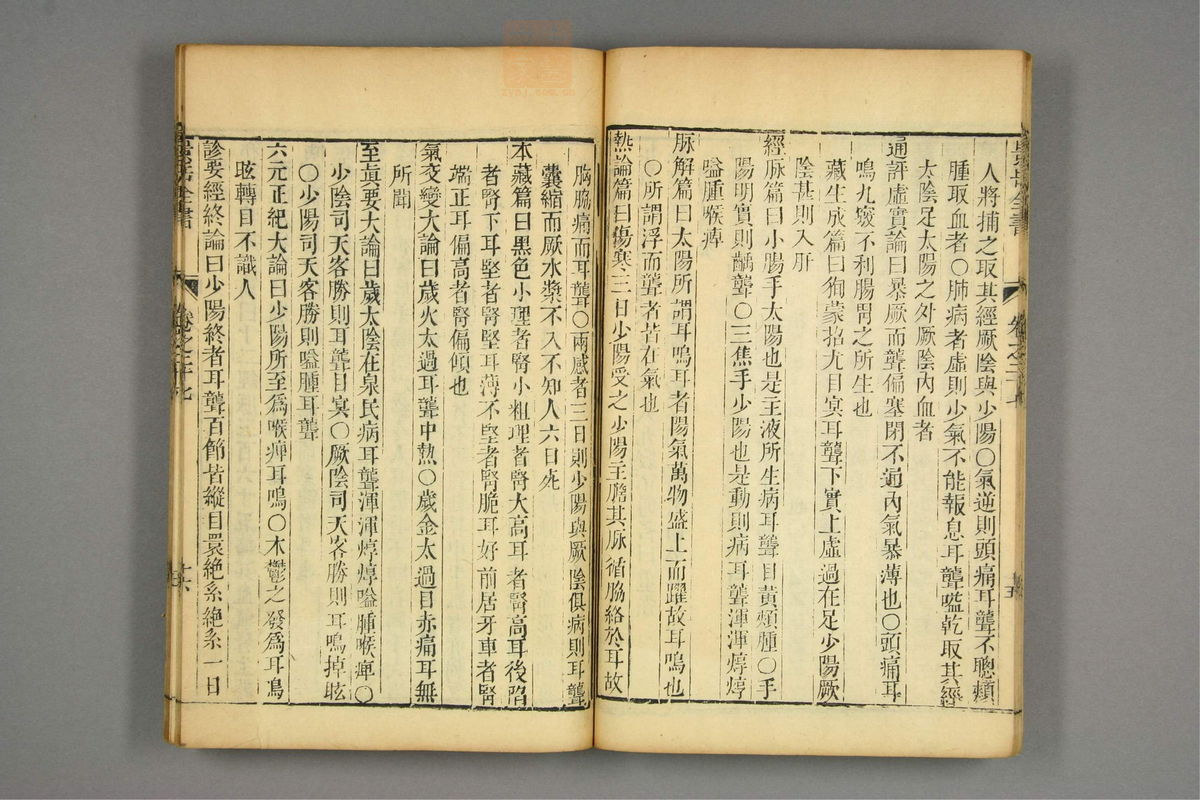 人將捕之取其經厥陰與少陽○氣逆則頭痛耳聾不聰頰
腫取血者○肺病者虛則少氣不能報息耳聾嗌乾取其經
太陰足太陽之外厥陰內血者
通評虛實論曰暴厥而聾偏塞閉不通內氣暴薄也○頭痛耳
鳴九竅不利腸胃之所生也
藏生成篇曰徇蒙招尤目冥耳聾下實上虛過在足少陽厥
陰甚則入肝
經脉篇曰小腸手太陽也是主液所生病耳聾目黃頰腫○手
陽明實則齲聾○三焦手少陽也是動則病耳聾渾渾焞焞
嗌腫喉痺
脉解篇曰太陽所謂耳鳴耳者陽氣萬物盛上而躍故耳鳴也
○所謂浮而聾者皆在氣也
熱論篇曰傷寒三日少陽受之少陽主膽其脉循脇絡於耳故
胸脇痛而耳聾○兩感者三日則少陽與厥陰俱病則耳聾
囊縮而厥水漿不入不知人六日死
本藏篇曰黑色小理者腎小粗理者腎大高耳者腎高耳後陷
者腎下耳堅者腎堅耳薄不堅者腎脆耳好前居牙車者腎
端正耳偏高者腎偏傾也
氣交變大論曰歲火太過耳聾中熱○歲金太過目赤痛耳無
所聞
至眞要大論曰歲太陰在泉民病耳聾渾渾焞焞嗌腫喉痺○
少陰司天客勝則耳聾目冥○厥陰司天客勝則耳鳴掉眩
○少陽司天客勝則嗌腫耳聾
六元正紀大論曰少陽所至爲喉痺耳鳴○木鬱之發爲耳鳥
眩轉目不識人
診要經終論曰少陽終者耳聾百節皆縱目睘絶系絶系一日